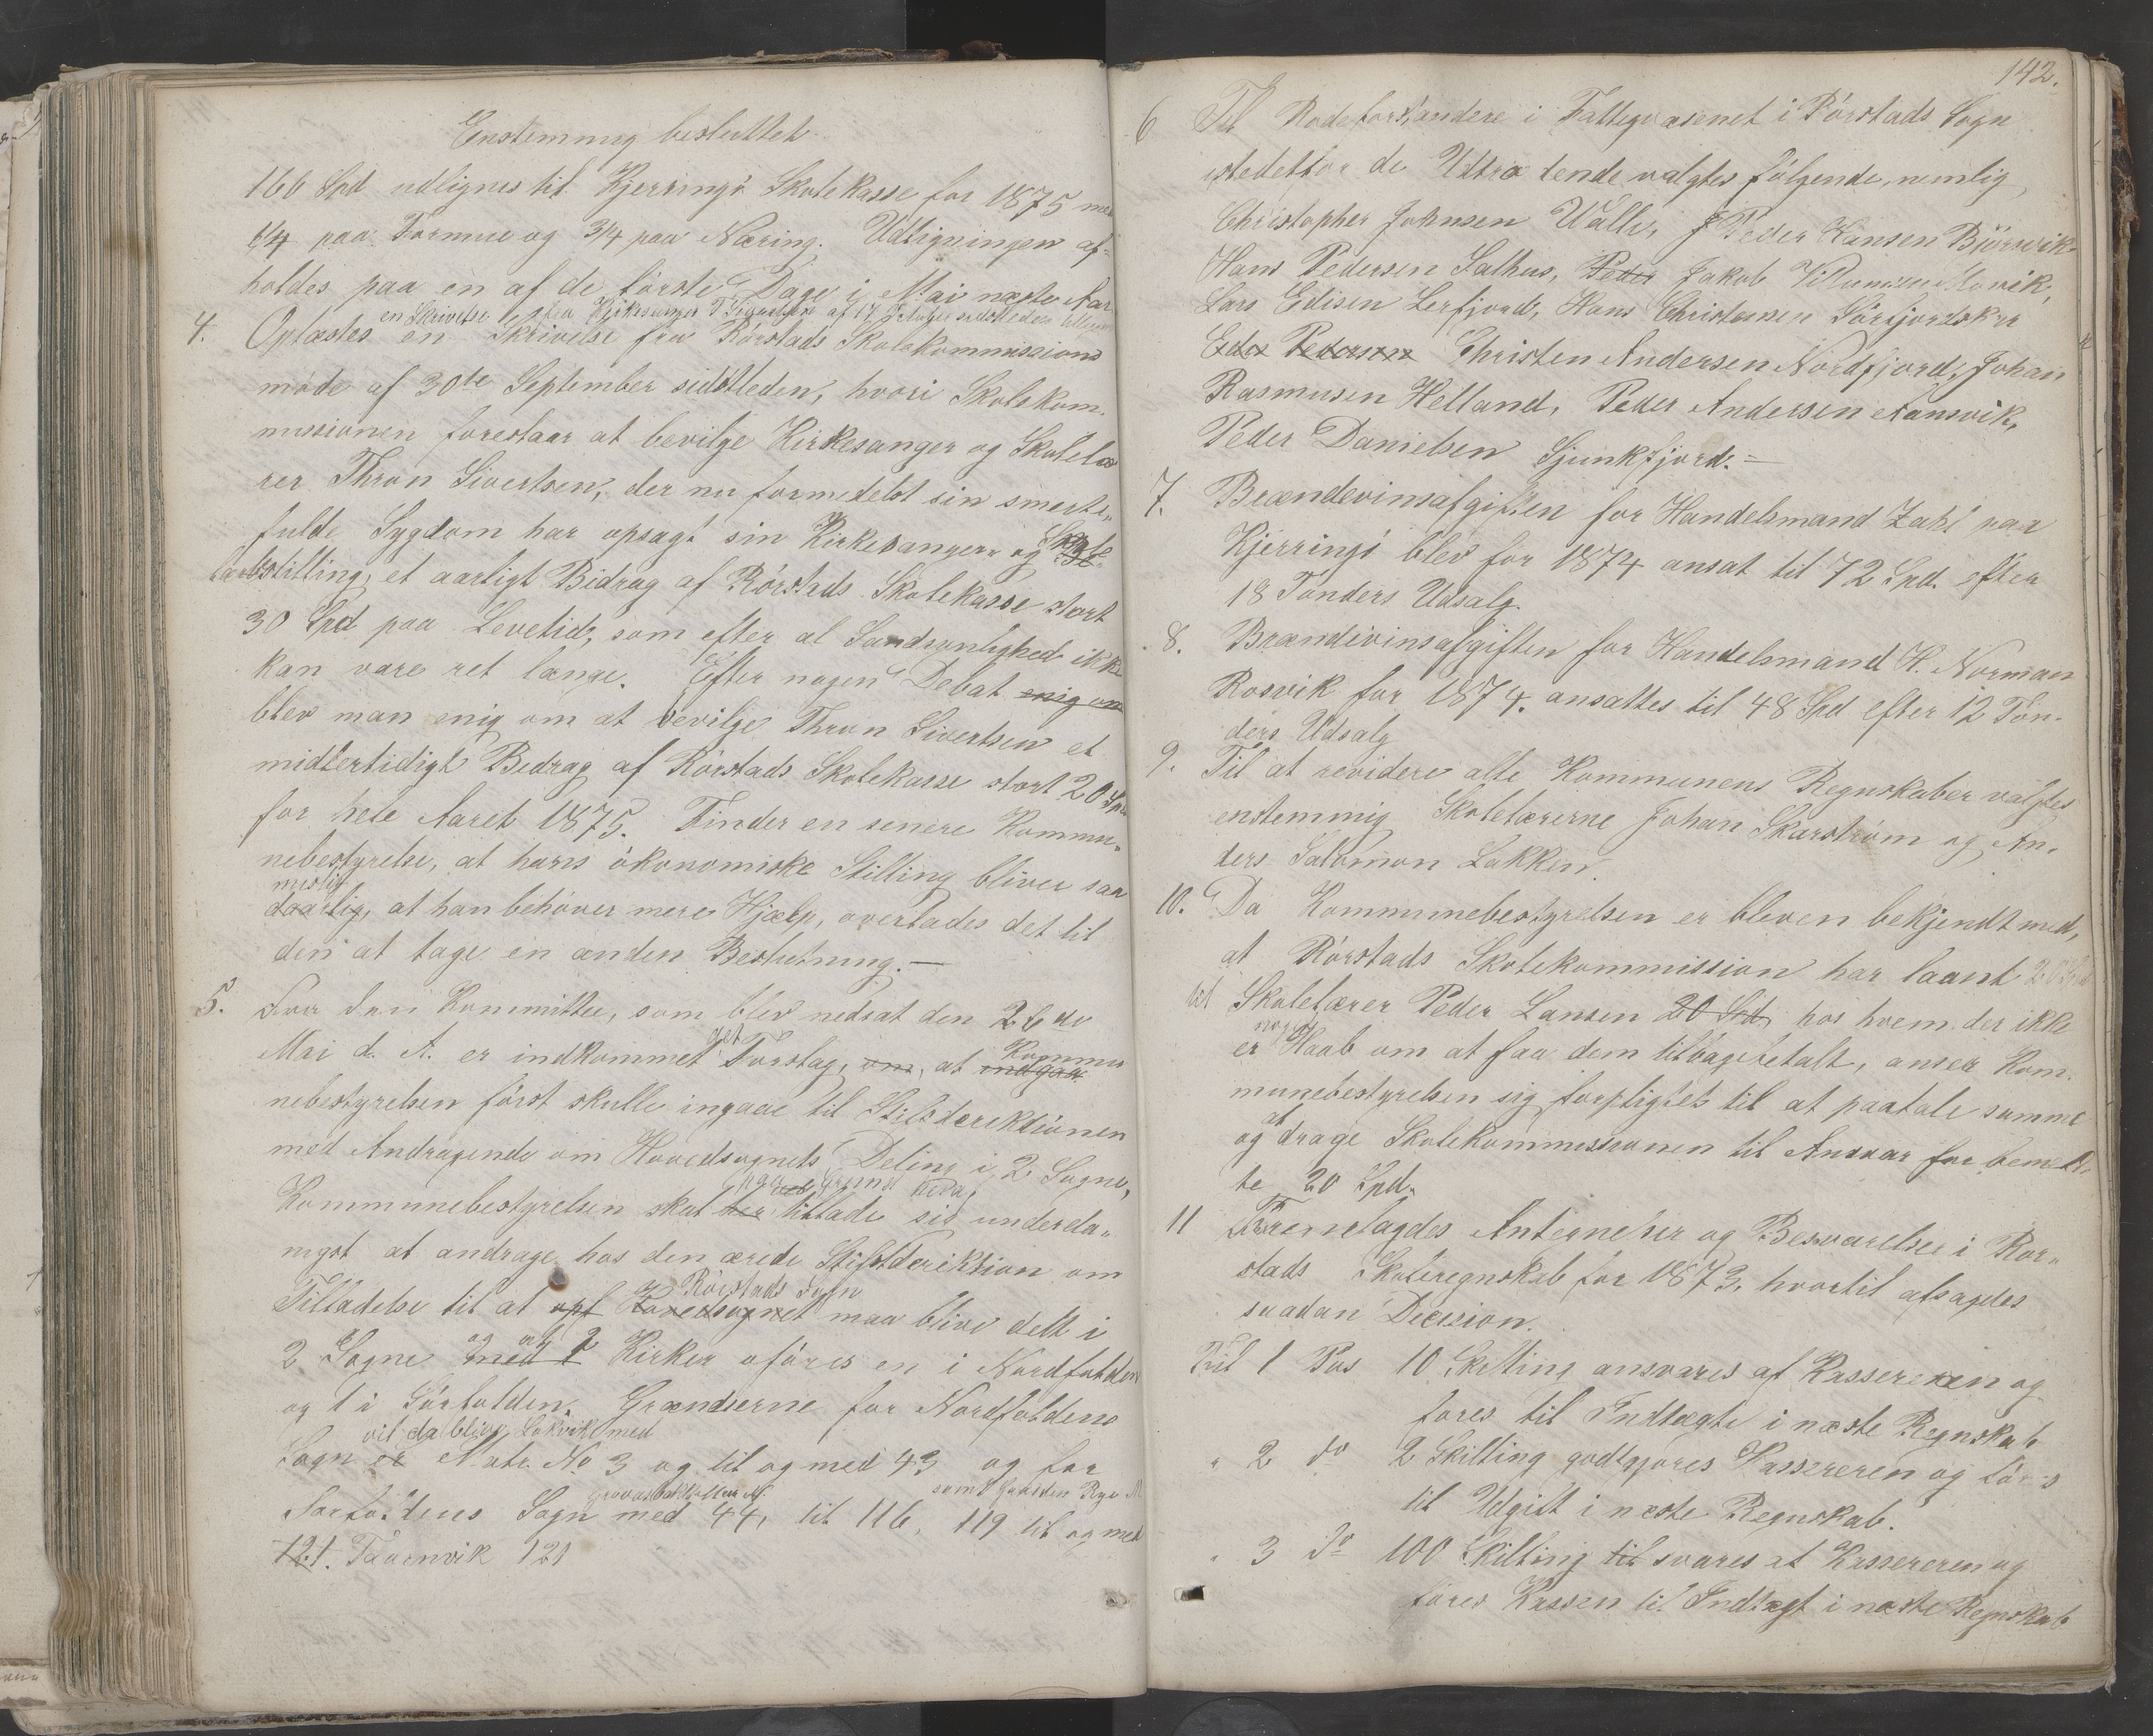 Enstemmig besluttet.
166 Spd udlignes til Kjerringö Skolekasse for 1875 med
1/4 paa Formue og 3/4 paa Næring. Udligningen af-
holdes paa en af de förste Dage i Mai næste Aar
en Skrivelse fra Kirkesanger T Sivertsen af 17 Oktober sidstleden
4. Oplæstes en Skrivelse fra Rörstads Skolekommissions
möde af 30te September sidstleden, hvori Skolekom-
missionen foreslaar at bevilge Kirkesanger og Skolelæ
rer Thron Sivertsen, der nu formedelst sin smerte-
fulde Sygdom har opsagt sin Kirkesanger- og Skole-
lærerstilling, et aarligt Bidrag af Rörstads Skolekasse stort
30 Spd paa Levetid, som efter al Sandsynlighed ikke
kan vare ret længe. Efter nogen Debat enig om
blev man enig om at bevilge Thron Sivertsen et
midlertidigt Bedrag af Rörstads Skolekasse stort 20 Spd
for hele Aaret 1875. Finder en senere Kommu-
nebestyrelse, at hans ökonomiske Stilling bliver saa
mislig
daarlig, at han behöver mere Hjælp, overlades det til
den at tage en anden Beslutning.—
5. Fra den Kommittee, som blev nedsat den 26de
det Kommu
Mai d. A. er indkommet Forslag, om, at indgaa
nebestyrelsen först skulle ingaae til Stiftsdirektionen
med Andragende om Hovedsognets Deling i 2 Sogne,
paa Grund heraf
Kommunebestyrelsen skal her tillade sig underda-
nigst at andrage hos den ærede Stiftdirektion om
af Rörstads Sogn
Tilladelse til at opf Hovedsognet maa blive delt i
og at 2
2 Sogne med 2 Kirker oföres en i Nordfolden
og 1 i Sörfolden. Grændserne for Nordfoldens
vil da blive Lakvik med
Sogn er Matr. No 3 og til og med 43 og for
samt Gaarden
Sörfoldens Sogn med 44, til 116, 119 til og med
121. Taarnvik 121
142.
6 Til Rodeforstandere i Fattigvæsenet i Rörstads Sogn
istedetfor de Udtrædende valgtes fölgende, nemlig
Christopher Johnsen Walle, J Peder Hansen Björnvik
Hans Pedersen Salhus, Peder Jakob Villumsen Movik,
Lars Edisen Lerfjord, Hans Christensen Sörfjordskar
Edes Pedersen Christen Andersen Nordfjord, Johan
Rasmusen Helland, Peder Andersen Aansvik,
Peder Danielsen Sjunkfjord.—
7. Brændevinsafgiften for Handelsmand Zahl paa
Kjerringö blev for 1874 ansat til 72 Spd. efter
18 Tönders Udsalg.
8. Brændivinsafgiften for Handelsmand H. Norman
Rosvik for 1874. ansattes til 48 Spd efter 12 Tön-
ders Udsalg
9. Til at revidere alle Kommunens Regnskaber valgtes
enstemmig Skolelærerne Johan Skarström og An-
ders Salomon Løkken.
10. Da Kommunebestyrelsen er bleven bekjendt med,
at Rörstads Skolekommission har laant 20 Spd
til Skolelærer Peder Lansen 20 Spd, hos hvem der ikke
noget
er Haab om at faa dem tilbagebetalt, anser Kom-
munebestyrelsen sig forpligtet til at paatale samme
at
og drage Skolekommissionen til Ansvar for bemeld-
te 20 Spd.
11 Fremlagdes Antegnelser og Besvarelser i Rör-
stads Skoleregnskab for 1873, hvortil afsagdes
saadan Decision.
Til 1 Pos 10 Skilling ansvares af Kassereren og
föres til Indtægt i næste Regnskab
" 2 do 2 Skilling godtgjöres Kassereren og föres
til Udgift i næste Regnskab.
" 3 do 100 Skilling til svares af Kassereren og
föres Kassen til Indtægt i næste Regnskab